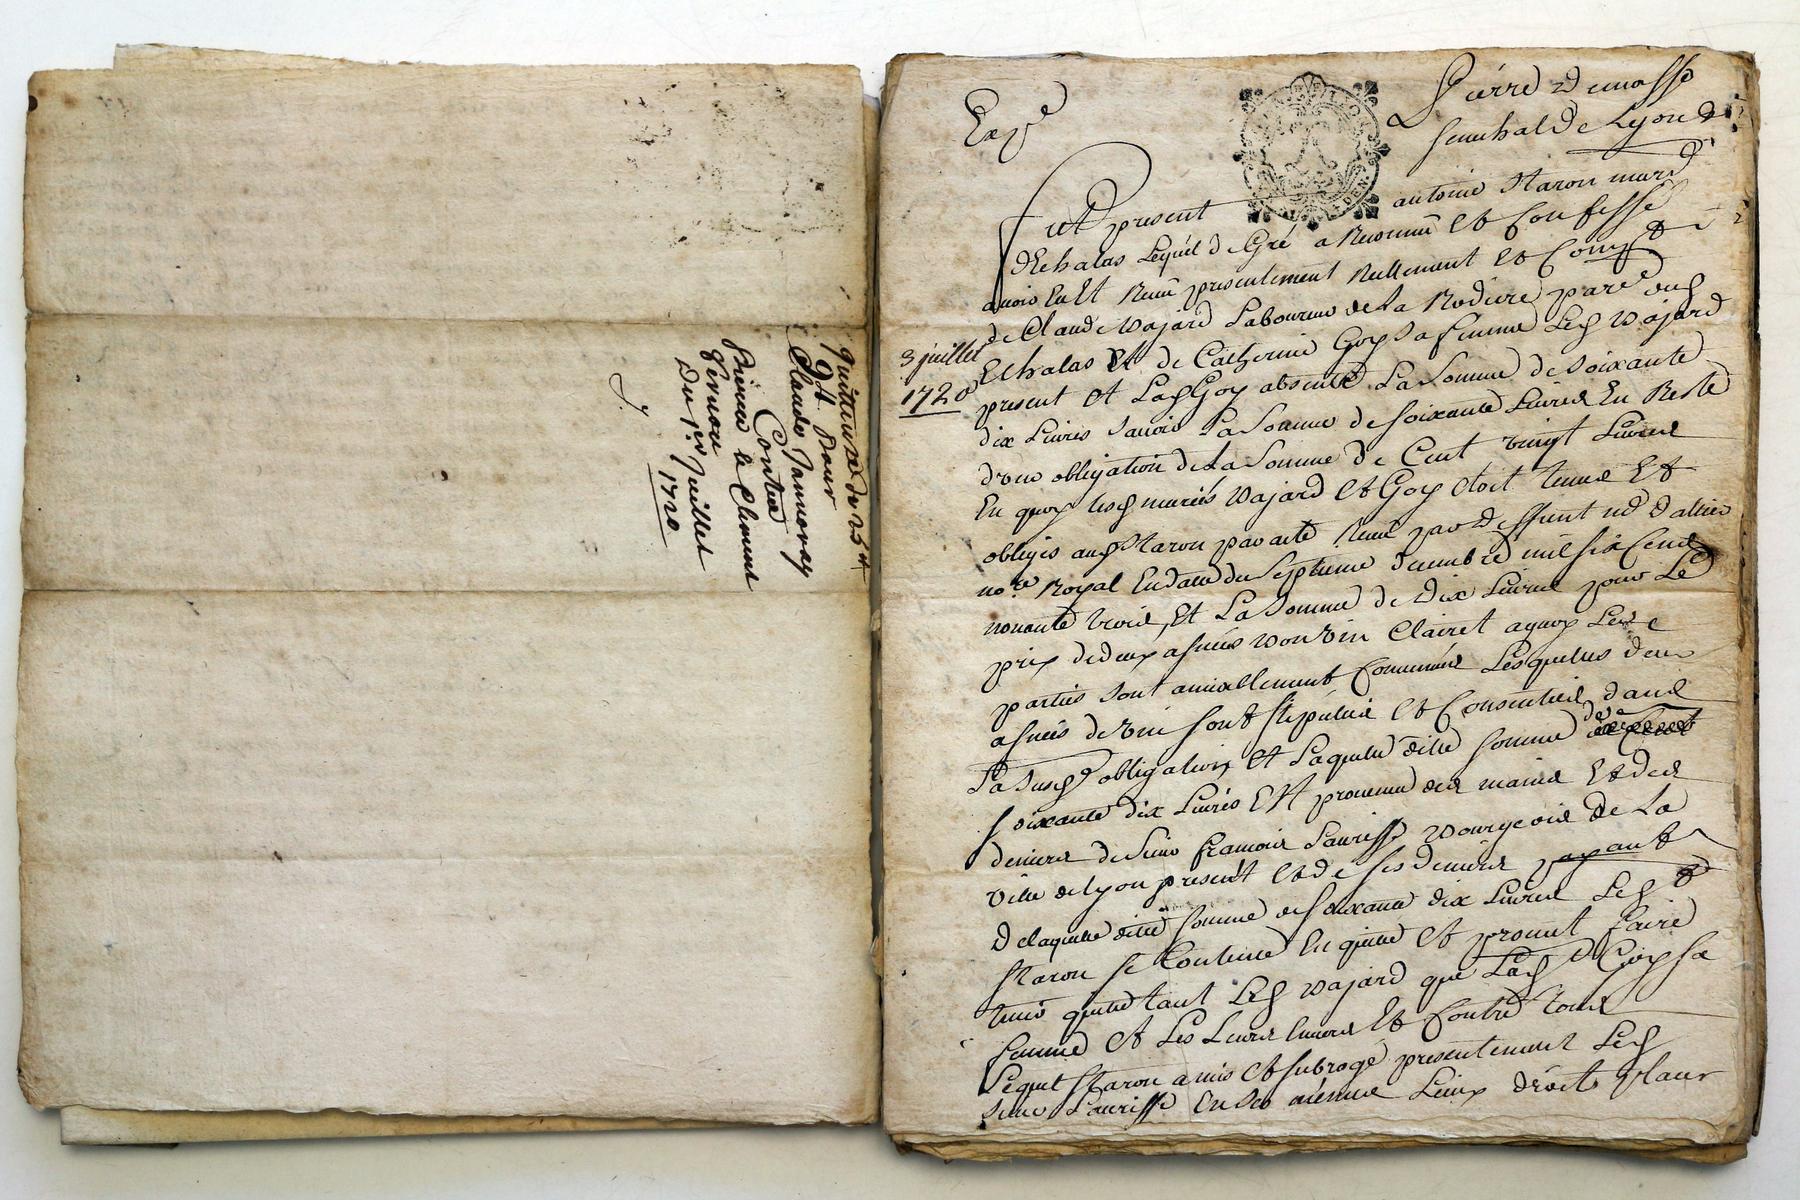 quittance de 25#
9# pour
Claude Jannoray
Contre
Pierre le Clement
Du 1er Juillet
1720
Pierre
senechal de Lyon
3 juillet
1720
fut present antoine Staron marc
dEchalas Lequel de Gré a Reconnu et Confessé
avoir Eu Et Receu presentement Reellement et
de Claude Vajard Laboureur de La Rodiere
Echalas Et de Catherine Goy Sa femme Led Vajard
present et Lad Goy absente La Somme de soixante
dix Livres Sauoir La Somme de soixante Livres En Reste
d'vne obligation de La Somme de Cent vingt Livres
En quoy lesd mariés Vajard et Goy etoit tenus Et
obligés aud Staron par acte Receu par
no.re Royal En datte du Septieme decembre mil six Cens
nonante trois, Et La Somme de Dix Livres pour Le
prix de deux asnées bon vin Clairet a quoy Les
parties sont amiablement Convenües Lesquelles deux
asnées de vin sont stipulées et Consenties dans
La Susd obligation Et Laquelle ditte somme de
soixante dix Livres Est prouenue des mains Et des
deniers de Sieur françois Lauriss Bourgeois de La
Ville de Lyon present et de ses deniers payant
De laquelle ditte somme de soixante dix Livres Led
Staron se Contente En quitte et promet faire
tenir quitte tant Led Vajard que Lad Goy sa
femme et Les Leurs Enuers Et Contre tous
Lequel Staron a mis et subrogé presentement Led
Sieur Laurisse En Son Lieux droits place